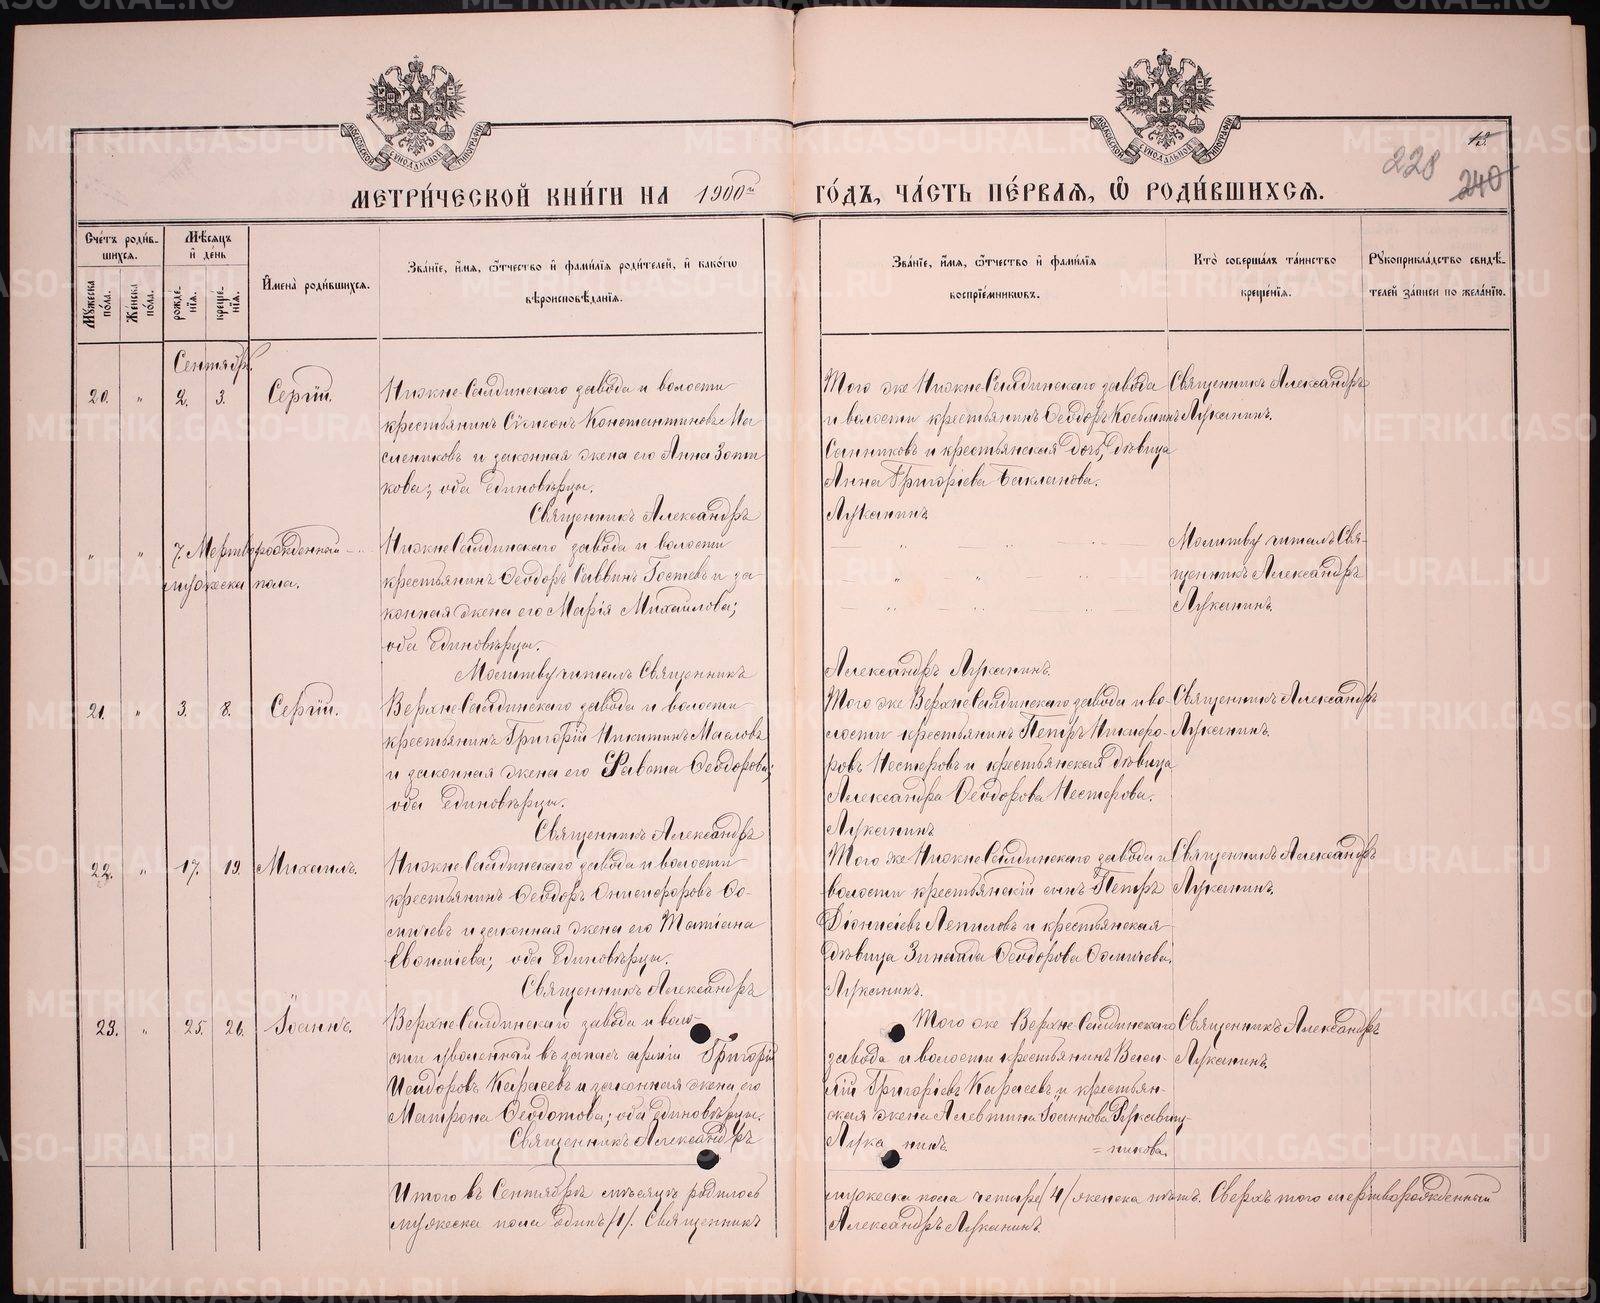 МЕТРИ́ЧЕСКОЙ КНИ́ГИ НА 1900й ГО́ДЪ, ЧА́СТЬ ПЕ́РВАѦ, Ѡ҆ РОДИ́ВШИХСѦ.
13.
228
240
Сче́тъ роди́в-
шихсѧ.
Мѣ́сѧцъ
и҆ де́нь
Мꙋ́жеска
по́ла.
Же́нска
по́ла.
рожде́-
нїѧ.
креще́-
нїѧ.
И҆мена̀ роди́вшихсѧ.
Зва́нїе, и҆́мѧ, ѻ҆́тчество и҆ фами́лїѧ роди́телей, и҆ како́гѡ
вѣроисповѣ́данїѧ.
Зва́нїе, и҆́мѧ, ѻ҆́тчество и҆ фами́лїѧ
воспрїе́мникѡвъ.
Кто̀ соверша́лъ та́инство
креще́нїѧ.
Рꙋкоприкла́дство свидѣ́-
телей за́писи по жела́нїю.
Сентябрь.
20. " 2. 3. Сергій.
Нижне-Салдинскаго завода и волости
крестьянинъ Сѵмеонъ Константиновъ Ма-
слениковъ и законная жена его Анна Зоти-
кова; оба единовѣрцы.
Священникъ Александръ
Того же Нижне-Салдинскаго завода
и волости крестьянинъ Ѳеодоръ Косьминъ
Санниковъ и крестьянская дочь, дѣвица
Анна Григоріева Бакланова.
Луканинъ.
Священникъ Александръ
Луканинъ.
" " 7. Мертворожденный
мужеска пола.
Нижне Салдинскаго завода и волости
крестьянинъ Ѳеодоръ Саввинъ Гостевъ и за-
конная жена его Марія Михаилова;
оба единовѣрцы.
Молитву читалъ Священникъ
Александръ Луканинъ.
Молитву читалъ Свя-
щенникъ Александръ
Луканинъ.
21. " 3. 8. Сергій.
Верхне Салдинскаго завода и волости
крестьянинъ Григорій Никитинъ Масловъ
и законная жена его Ѳеодорова;
оба единовѣрцы.
Священникъ Александръ
Того же Верхне Салдинскаго завода и во-
лости крестьянинъ Петръ Никифо-
ровъ Нестеровъ и крестьянская дѣвица
Александра Ѳеодорова Нестерова.
Луканинъ
Священникъ Александръ
Луканинъ.
22. " 17. 19. Михаилъ.
Нижне Салдинскаго завода и волости
крестьянинъ Ѳеодоръ Онисифоровъ Ѳо-
мичевъ и законная жена его Татіана
оба единовѣрцы.
Священникъ Александръ
Того же Нижне Салдинскаго завода и
волости крестьянскій сынъ Петръ
Діонисіевъ Лепиловъ и крестьянская
дѣвица Зинаида Ѳеодорова Ѳомичева.
Луканинъ.
Священникъ Александръ
Луканинъ.
23. " 25. 26. Іоаннъ.
Верхне Салдинскаго завода и воло-
сти уволенный въ запасъ арміи Григорій
Исидоровъ Карасевъ и законная жена его
Матрона Ѳеодотова; оба единовѣрцы.
Священникъ Александръ
Того же Верхне Салдинскаго
завода и волости крестьянинъ Васи-
лій Григоріевъ Карасевъ и крестьян-
ская жена Алевтина Іоаннова Рукавиш-
никова.
Луканинъ.
Священникъ Александръ
Луканинъ.
Итого въ Сентябрѣ мѣсяцѣ родилось мужеска пола четыре /4/ женска нѣтъ. Сверхъ того мертворожденный
мужеска пола одинъ /1/. Священникъ Александръ Луканинъ.
METRIKI.GASO-URAL.RU